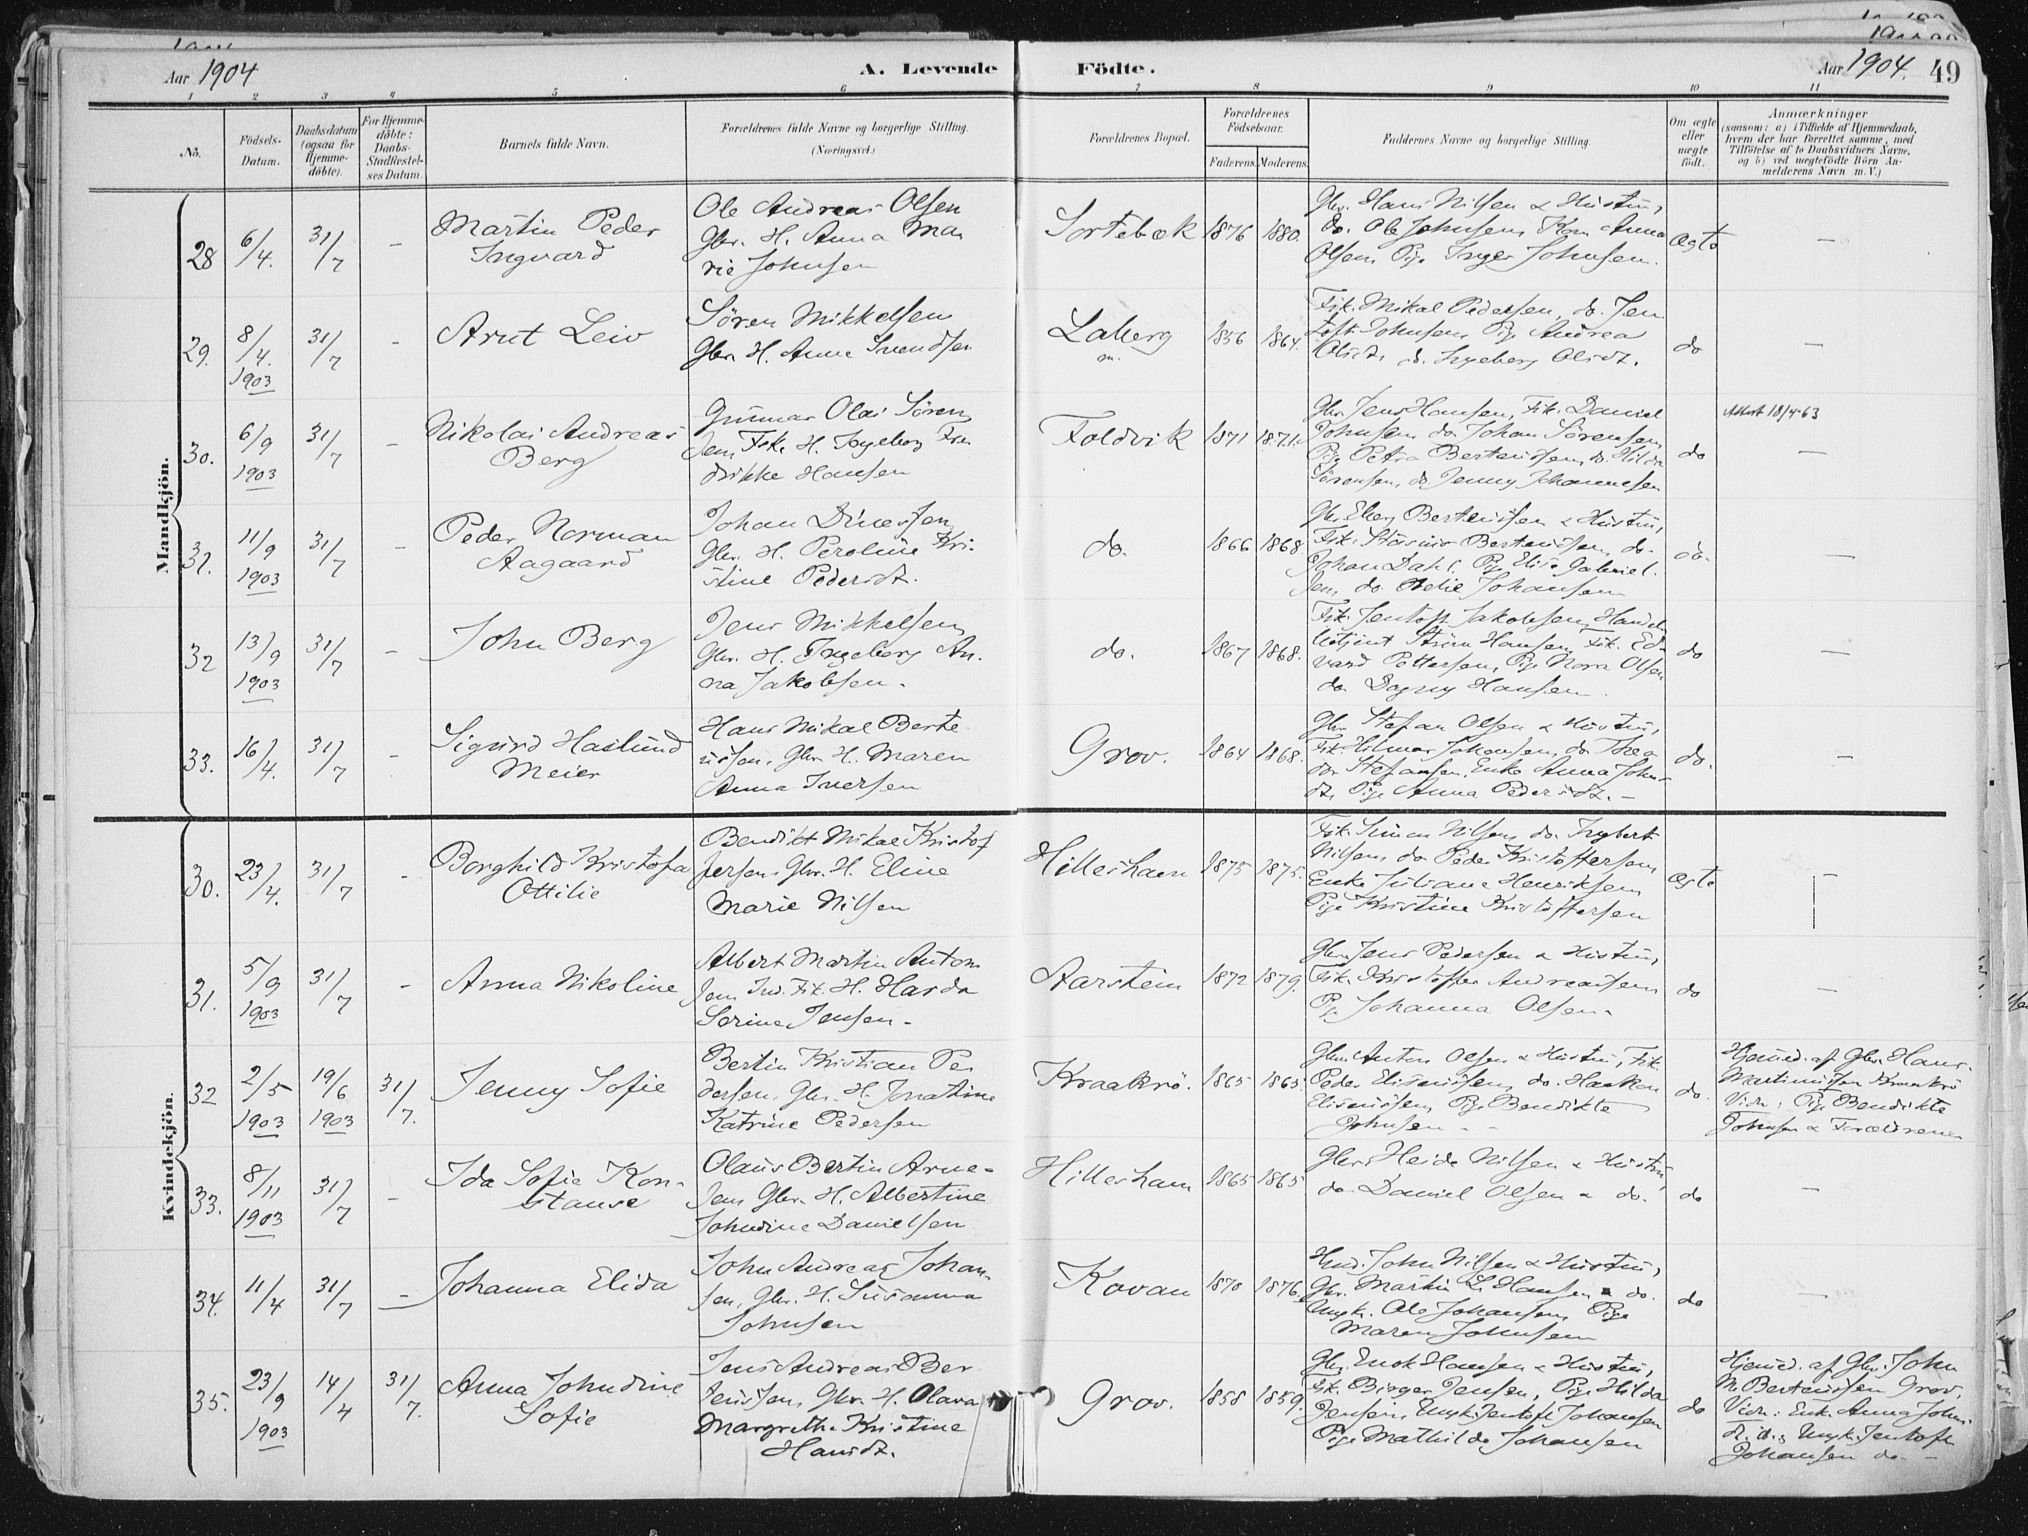 Aar 1904
A. Levende
Födte.
Aar 1904. 49
1 2 3 4 5 6 7 8 9 10 11
No.
Födsels-
Datum.
Daabsdatum
(ogsaa for
Hjemme-
döbte).
For Hjemme-
döbte:
Daabs-
Stadfæstel-
ses Datum.
Barnets fulde Navn.
Forældrenes fulde Navne og borgerlige Stilling.
(Næringsvei.)
Forældrenes Bopæl.
Forældrenes
Födselsaar.
Faderens. Moderens.
Faddernes Navne og borgerlige Stilling.
Om ægte
eller
uægte
födt.
Anmærkninger
(saasom: a) i Tilfælde af Hjemmedaab,
hvem der har forrettet samme, med
Tilföielse af to Daabsvidners Navne,
og b) ved uægtefödte Börn An-
melderens Navn m. V.)
Mandkjön.
28 6/4. 31/7 -
Martin Peder
Ingvard
Ole Andreas Olsen
Gbr. H. Anna Ma
rie Johnsen
Sortebæk 1876 1880.
Gbr. Hans Nilsen & Hustru,
do. Ole Johnsen, Kone Anna
Olsen, Pige Inger Johnsen.
ægte —
29. 8/4. 31/7 -
Arnt Leiv
Sören Mikkelsen
Gbr. H. Anne Svendsen
Laberg 1856 1864.
Fisk. Mikal Pedersen, do. Jen
toft Johnsen, Pige Andrea
Olsdt. d. Ingeberg Olsdt.
do —
30. 1903 6/9 31/7 -
1903
Nikolai Andreas
Berg
Gunnar Olai Sören
sen, Fisk. H. Ingeborg Fre
drikke Hansen
Foldvik 1871 1871.
Gbr. Jens Hansen, Fisk. Daniel
Johnsen, do Johan Sörensen,
Pige Petra Berteussen, do. Hilda
Sörensen, do. Jenny Johannesen
do
Attest 18/4-63
—
31. 11/9 31/7 -
1903
Peder Norman
Aagaard
Johan Dinessen
Gbr. H. Peroline Kri-
stine Pedersdt.
do. 1866 1868.
Gbr. Eberg Berteussen & Hustru,
Fisk. Berteussen, do.
Johan Dahl, Pige Elise Gabriel-
sen, do. Johansen
do. —
32 13/9 31/7 -
1903
John Berg
Jens Mikkelsen,
Gbr. H. Ingeberg An-
na Jakobsen.
do. 1867 1868.
Fisk. Jentoft Jakobsen, Handels
betjent Hansen, Fisk. Ed-
vard Pettersen, Pige Nora Olsen
do Dagny Hansen.
do —
33. 16/4. 31/7 -
Sigurd Haslund
Meier
Hans Mikal Berte
ussen, Gbr. H. Maren
Anna Iversen
Grov. 1864 1868.
Gbr. Stefan Olsen & Hustru,
Fisk. Hilmar Johansen, do Theo
dor Stefansen, Enke Anna Johns-
dt, Pige Anna Pedersdt. —
do. —
Kvindekjön.
30. 23/4. 31/7 -
Borghild Kristofa
Ottilie
Bendikt Mikal Kristof
fersen, Gbr. H. Eline
Marie Nilsen
Hilleshavn 1875 1875.
Fisk. Simon Nilsen, do. Ingbert
Nilsen, do Peder Kristoffersen,
Enke Juliane Henriksen,
Pige Kristine Kristoffersen
ægte —
31. 5/9 31/7 -
1903
Anna Nikoline
Albert Martin Anton
sen, Ind. Fisk. H. Harda
Serine Jensen.
Aarstein 1872 1879.
Gbr. Jens Pedersen & Hustru,
Fisk. Kristoffer Andreassen,
Pige Johanna Olsen.
do —
32 2/5 19/6 31/7.
1903 1903
Jenny Sofie
Bertin Kristian Pe
dersen, Gbr. H. Jonathine
Katrine Pedersen
Kraakrö. 1865 1865.
Gbr. Anton Olsen & Hustru, Fisk.
Peder Eliseussen, do. Haakon
Eliseussen, Pige Bendikte
Johnsen
do.
Hjemmed. af Gbr. Hans
Martinussen Kraakrö
Vidn: Pige Bendikte
Johnsen & Forældrene
33. 8/11 31/7 -
1903
Ida Sofie Kon-
stanse
Olaus Bertin Arne-
sen, Gbr. H. Albertine
Johndine Danielsen
Hilleshavn 1865 1865
Gbr. Heide Nilsen & Hustru,
do. Daniel Olsen & do.
do —
34. 11/4 31/7 —
Johanna Elida
John Andreas Johan-
sen, Gbr. H. Susanna
Johnsen
Kovan 1870 1876.
Hmd. John Nilsen & Hustru,
Gbr. Martin L. Hansen & do.
Ungk. Ole Johansen, Pige
Maren Johnsen
do —
35. 23/9 14/4 31/7.
1903
Anna Johndine
Sofie
Jens Andreas Ber
teussen, Gbr. H. Olava
Margrethe Kristine
Hansdt.
Grov. 1858 1859.
Gbr. Enok Hansen & Hustru,
Fisk. Birger Jensen, Pige Hilda
Jensen, Ungk. Jentoft Johansen
Pige Mathilde Johansen
do
Hjemmed. af Gbr. John
M. Berteussen Grov.
Vidn: Enk. Anna Johns-
dt. do, Ungk. Jentoft
Johansen do. —